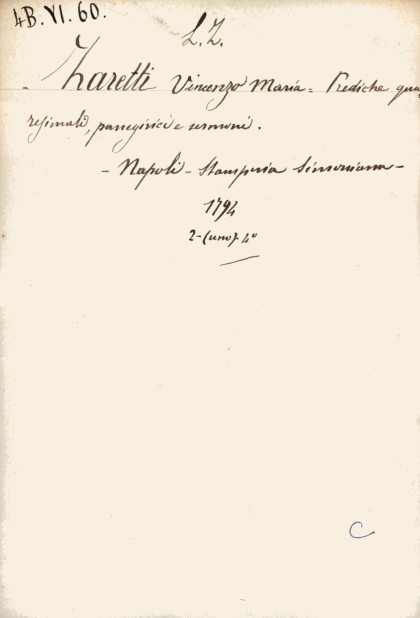 4B. VI. 60.
L. Z.
- Zaretti Vincenzo Maria = Prediche qua=
resimali, panegirici e sermoni.
- Napoli - Stamperia Simoniana -
1794
2-(uno) 4º
C